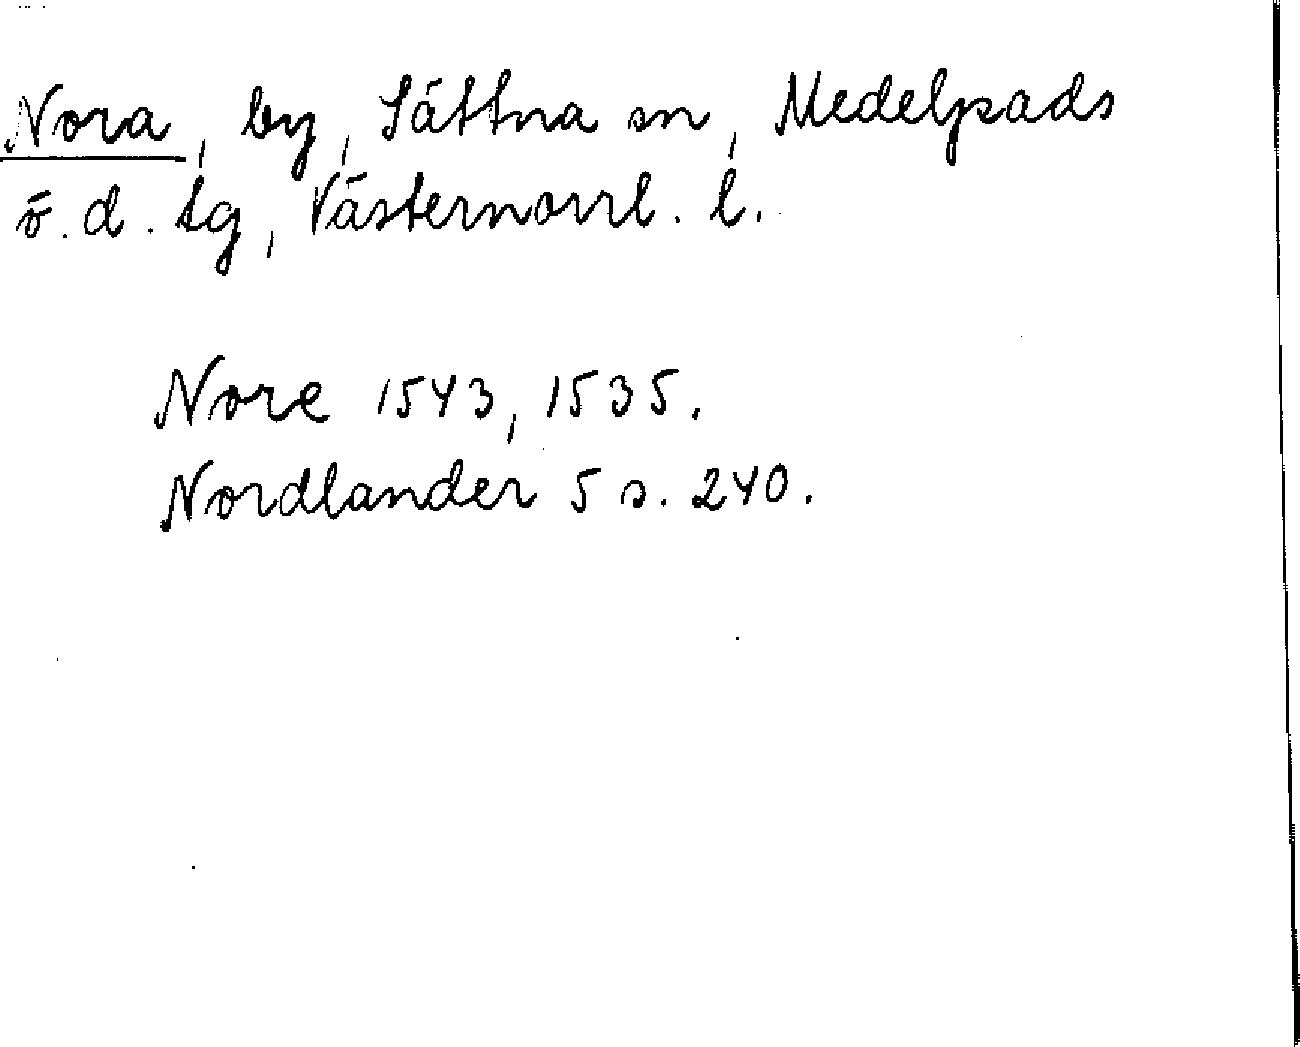 Nora, by, Sättna sn, Medelpads
ö. d. tg, Västernorrl. l.
Nore 1543, 1535.
Nordlander 5 s. 240.